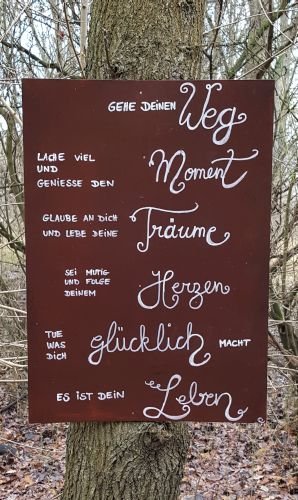 GEHE DEINEN Weg
LACHE VIEL
UND
GENIESSE DEN Moment
GLAUBE AN DICH
UND LEBE DEINE Träume
SEI MUTIG
UND FOLGE
DEINEM Herzen
TUE
WAS
DICH glücklich MACHT
ES IST DEIN Leben